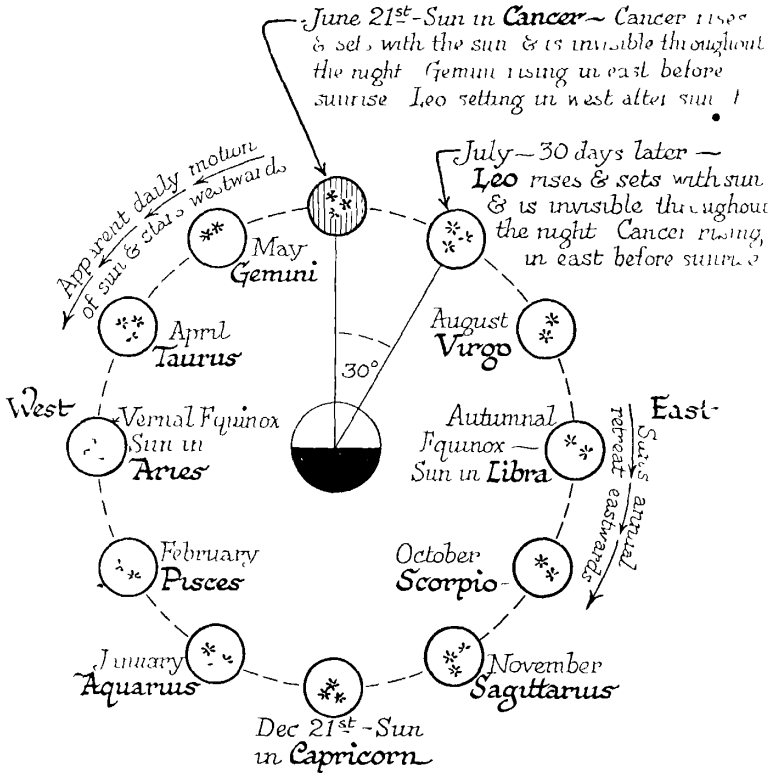 June 21st - Sun in Cancer - Cancer rises
& sets with the sun & is invisible throughout
the night Gemini rising in east before
sunrise Leo setting in west after
July - 30 days later -
Leo rises & sets with sun
& is invisible throughout
the night Cancer rising
in east before sunrise
Apparent daily motion
of sun & stars westwards
May
Gemini
April
Taurus
West
Vernal Equinox
Sun in
Aries
February
Pisces
January
Aquarius
Dec 21st - Sun
in Capricorn
November
Sagittarius
October
Scorpio
Autumnal
Equinox -
Sun in Libra
August
Virgo
30°
East
Sun's annual
retreat eastwards